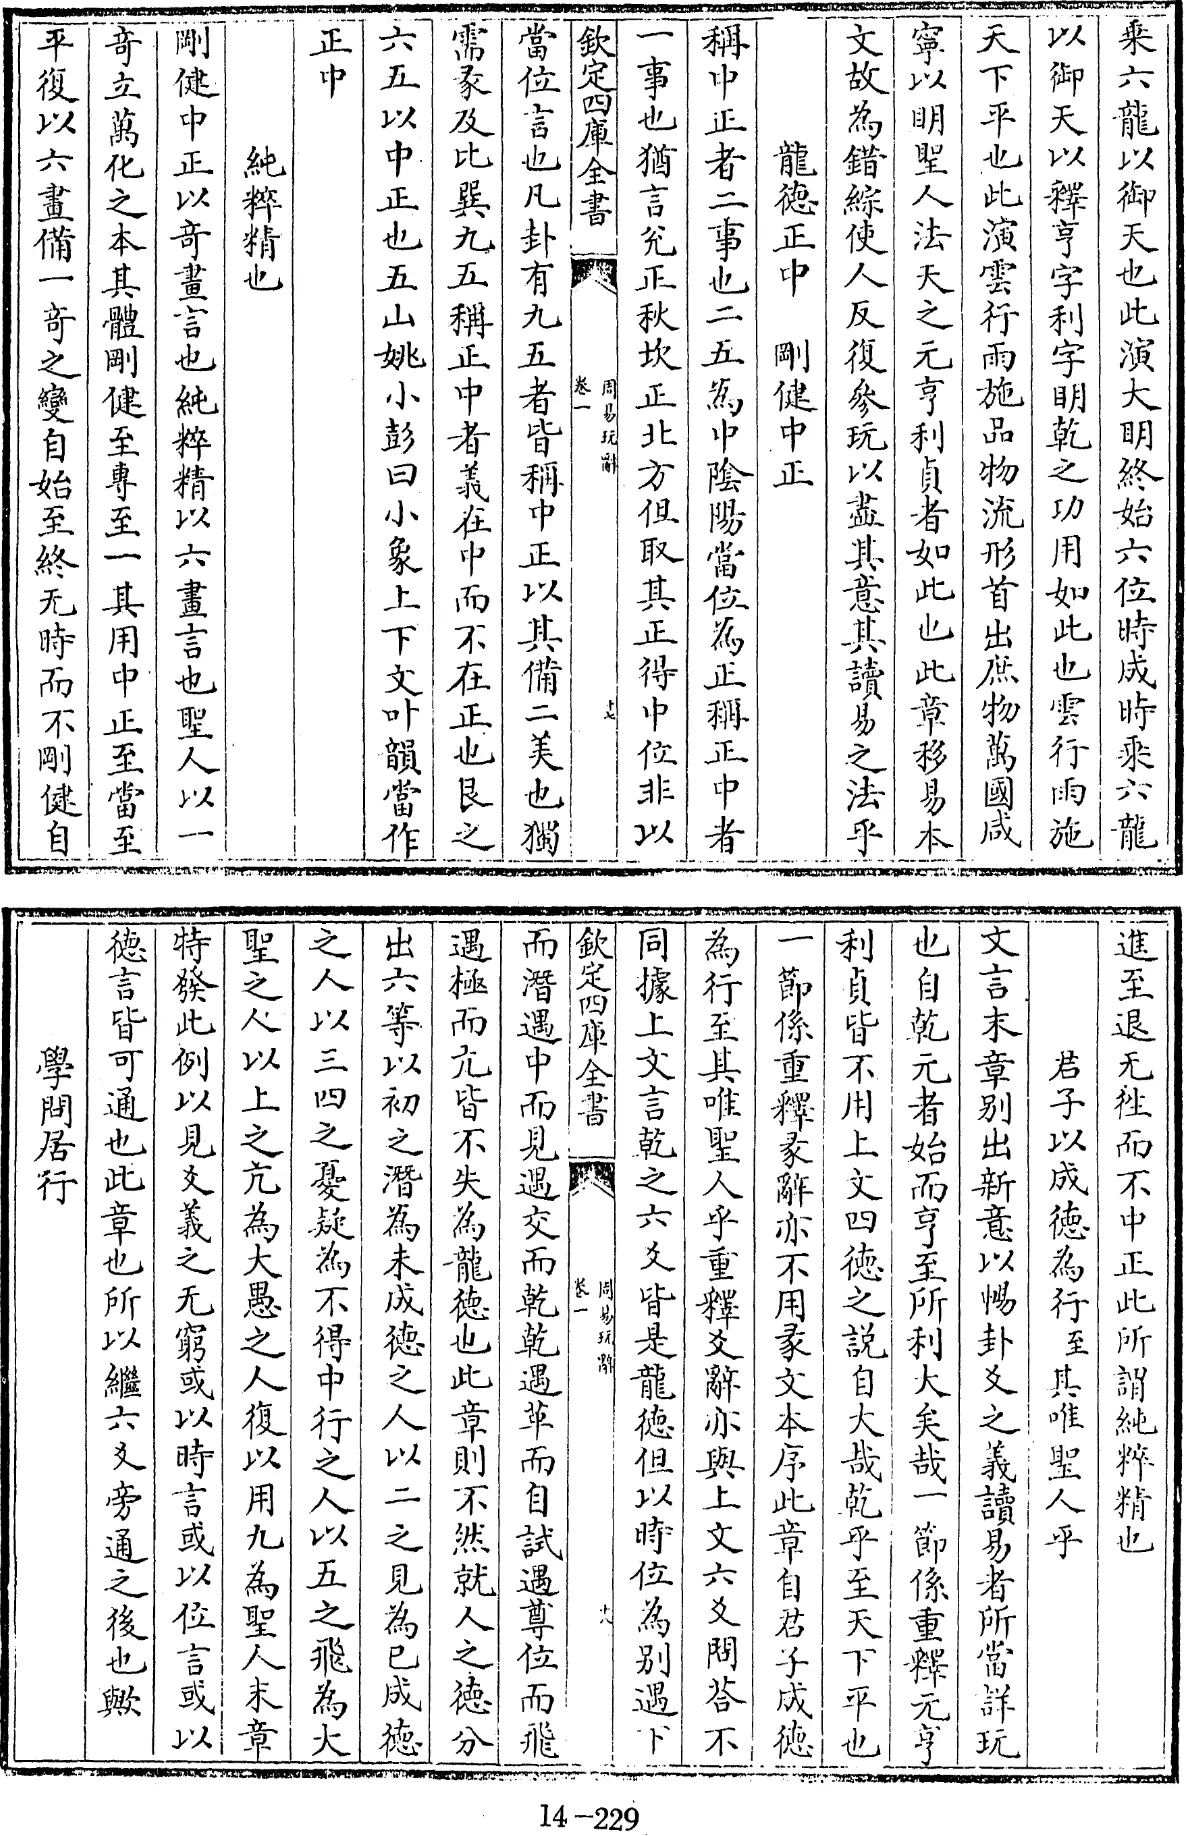 乘六龍以御天也此演大明終始六位時成時乘六龍
以御天以釋亨字利字明乾之功用如此也雲行雨施
天下平也此演雲行雨施品物流形首出庶物萬國咸
寧以明聖人法天之元亨利貞者如此也此章移易本
文故為錯綜使人反復參玩以盡其意其讀易之法乎
龍德正中　剛健中正
稱中正者二事也二五為中陰陽當位為正稱正中者
一事也猶言兊正秋坎正北方但取其正得中位非以
欽定四庫全書
周易玩辭
卷一
十七
當位言也凡卦有九五者皆稱中正以其備二美也獨
需彖及比巽九五稱正中者義在中而不在正也艮之
六五以中正也五山姚小彭曰小象上下文叶韻當作
正中
純粹精也
剛健中正以奇畫言也純粹精以六畫言也聖人以一
奇立萬化之本其體剛健至專至一其用中正至當至
平復以六畫備一奇之變自始至終无時而不剛健自
進至退无往而不中正此所謂純粹精也
君子以成德為行至其唯聖人乎
文言末章別出新意以暢卦爻之義讀易者所當詳玩
也自乾元者始而亨至所利大矣哉一節係重釋元亨
利貞皆不用上文四德之説自大哉乾乎至天下平也
一節係重釋彖辭亦不用彖文本序此章自君子成德
為行至其唯聖人乎重釋爻辭亦與上文六爻問荅不
同據上文言乾之六爻皆是龍德但以時位為別遇下
欽定四庫全書
周易玩辭
卷一
十八
而潛遇中而見遇交而乾乾遇革而自試遇尊位而飛
遇極而亢皆不失為龍德也此章則不然就人之德分
出六等以初之潛為未成德之人以二之見為已成德
之人以三四之憂疑為不得中行之人以五之飛為大
聖之人以上之亢為大愚之人復以用九為聖人末章
特發此例以見爻義之无窮或以時言或以位言或以
德言皆可通也此章也所以繼六爻旁通之後也歟
學問居行
14-229